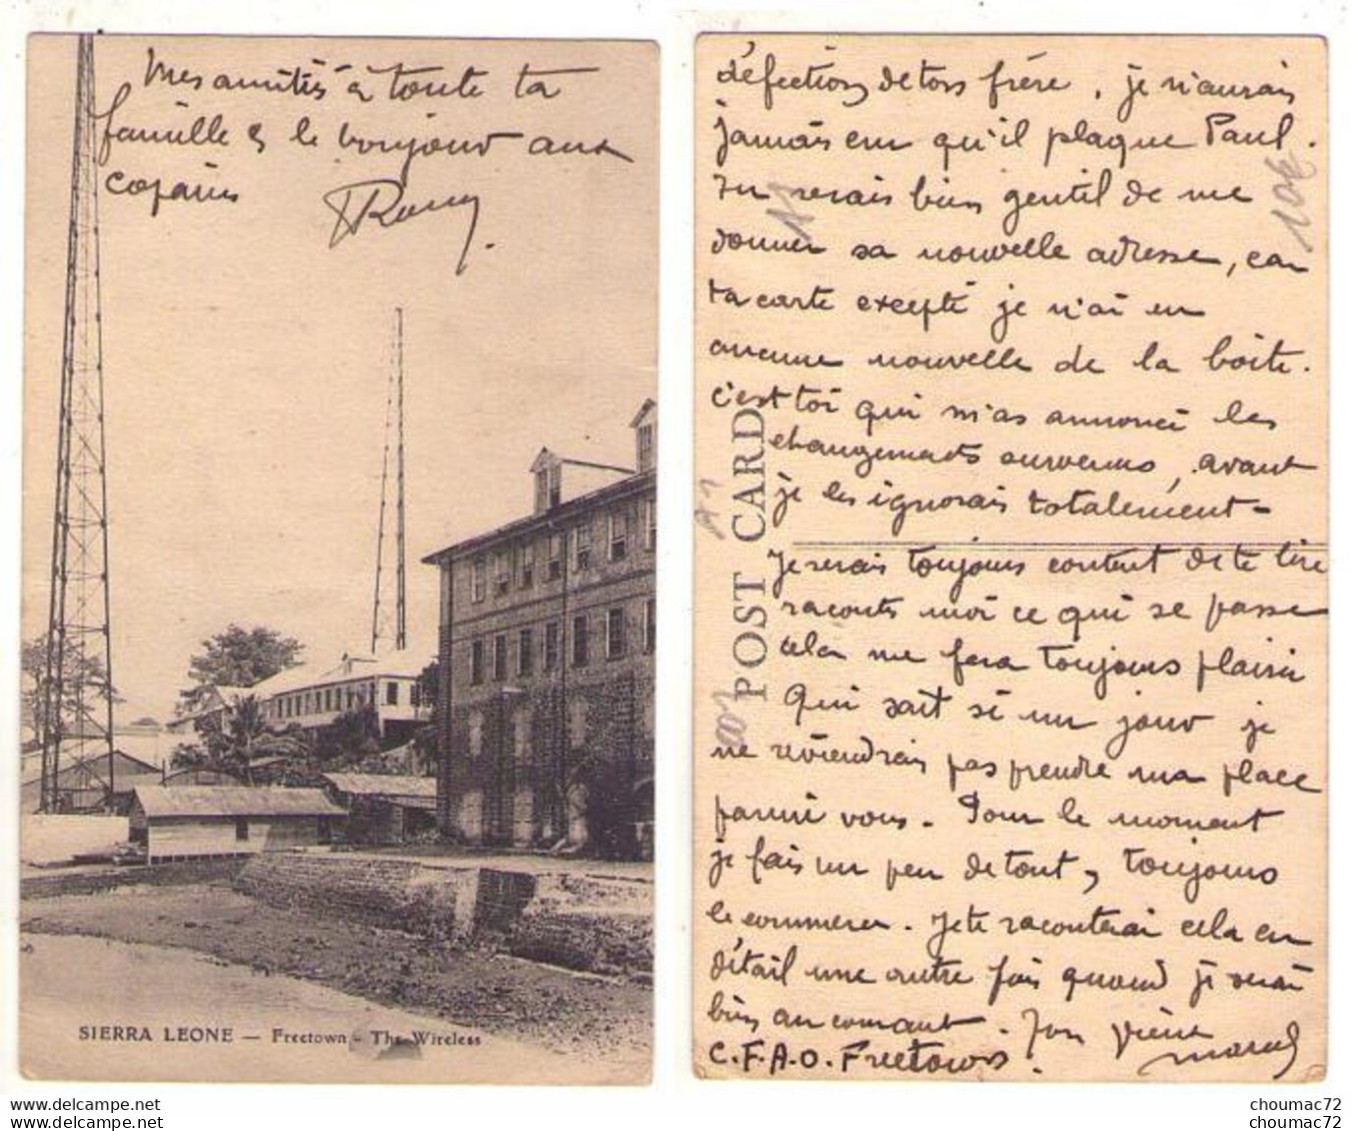 Mes amitiés à toute ta
famille & le bonjour aux
copains
SIERRA LEONE — Freetown - The Wireless
défection de ton frère, je n'aurais
jamais cru qu'il plaque Paul.
Tu serais bien gentil de me
donner sa nouvelle adresse, car
ta carte excepté je n'ai eu
aucune nouvelle de la boîte.
c'est toi qui m'as annoncé les
changements survenus, avant
je les ignorais totalement -
Je serais toujours content de te lire
raconte moi ce qui se passe
cela me fera toujours plaisir
Qui sait si un jour je
ne reviendrais pas prendre ma place
parmi vous. Pour le moment
je fais un peu de tout, toujours
le commerce. Je te raconterai cela en
détail une autre fois quand je serai
bien au courant. Ton vieux
Marcel
C.F.A.O. Freetown.
POST CARD
10€
choumac72
choumac72
choumac72
choumac72